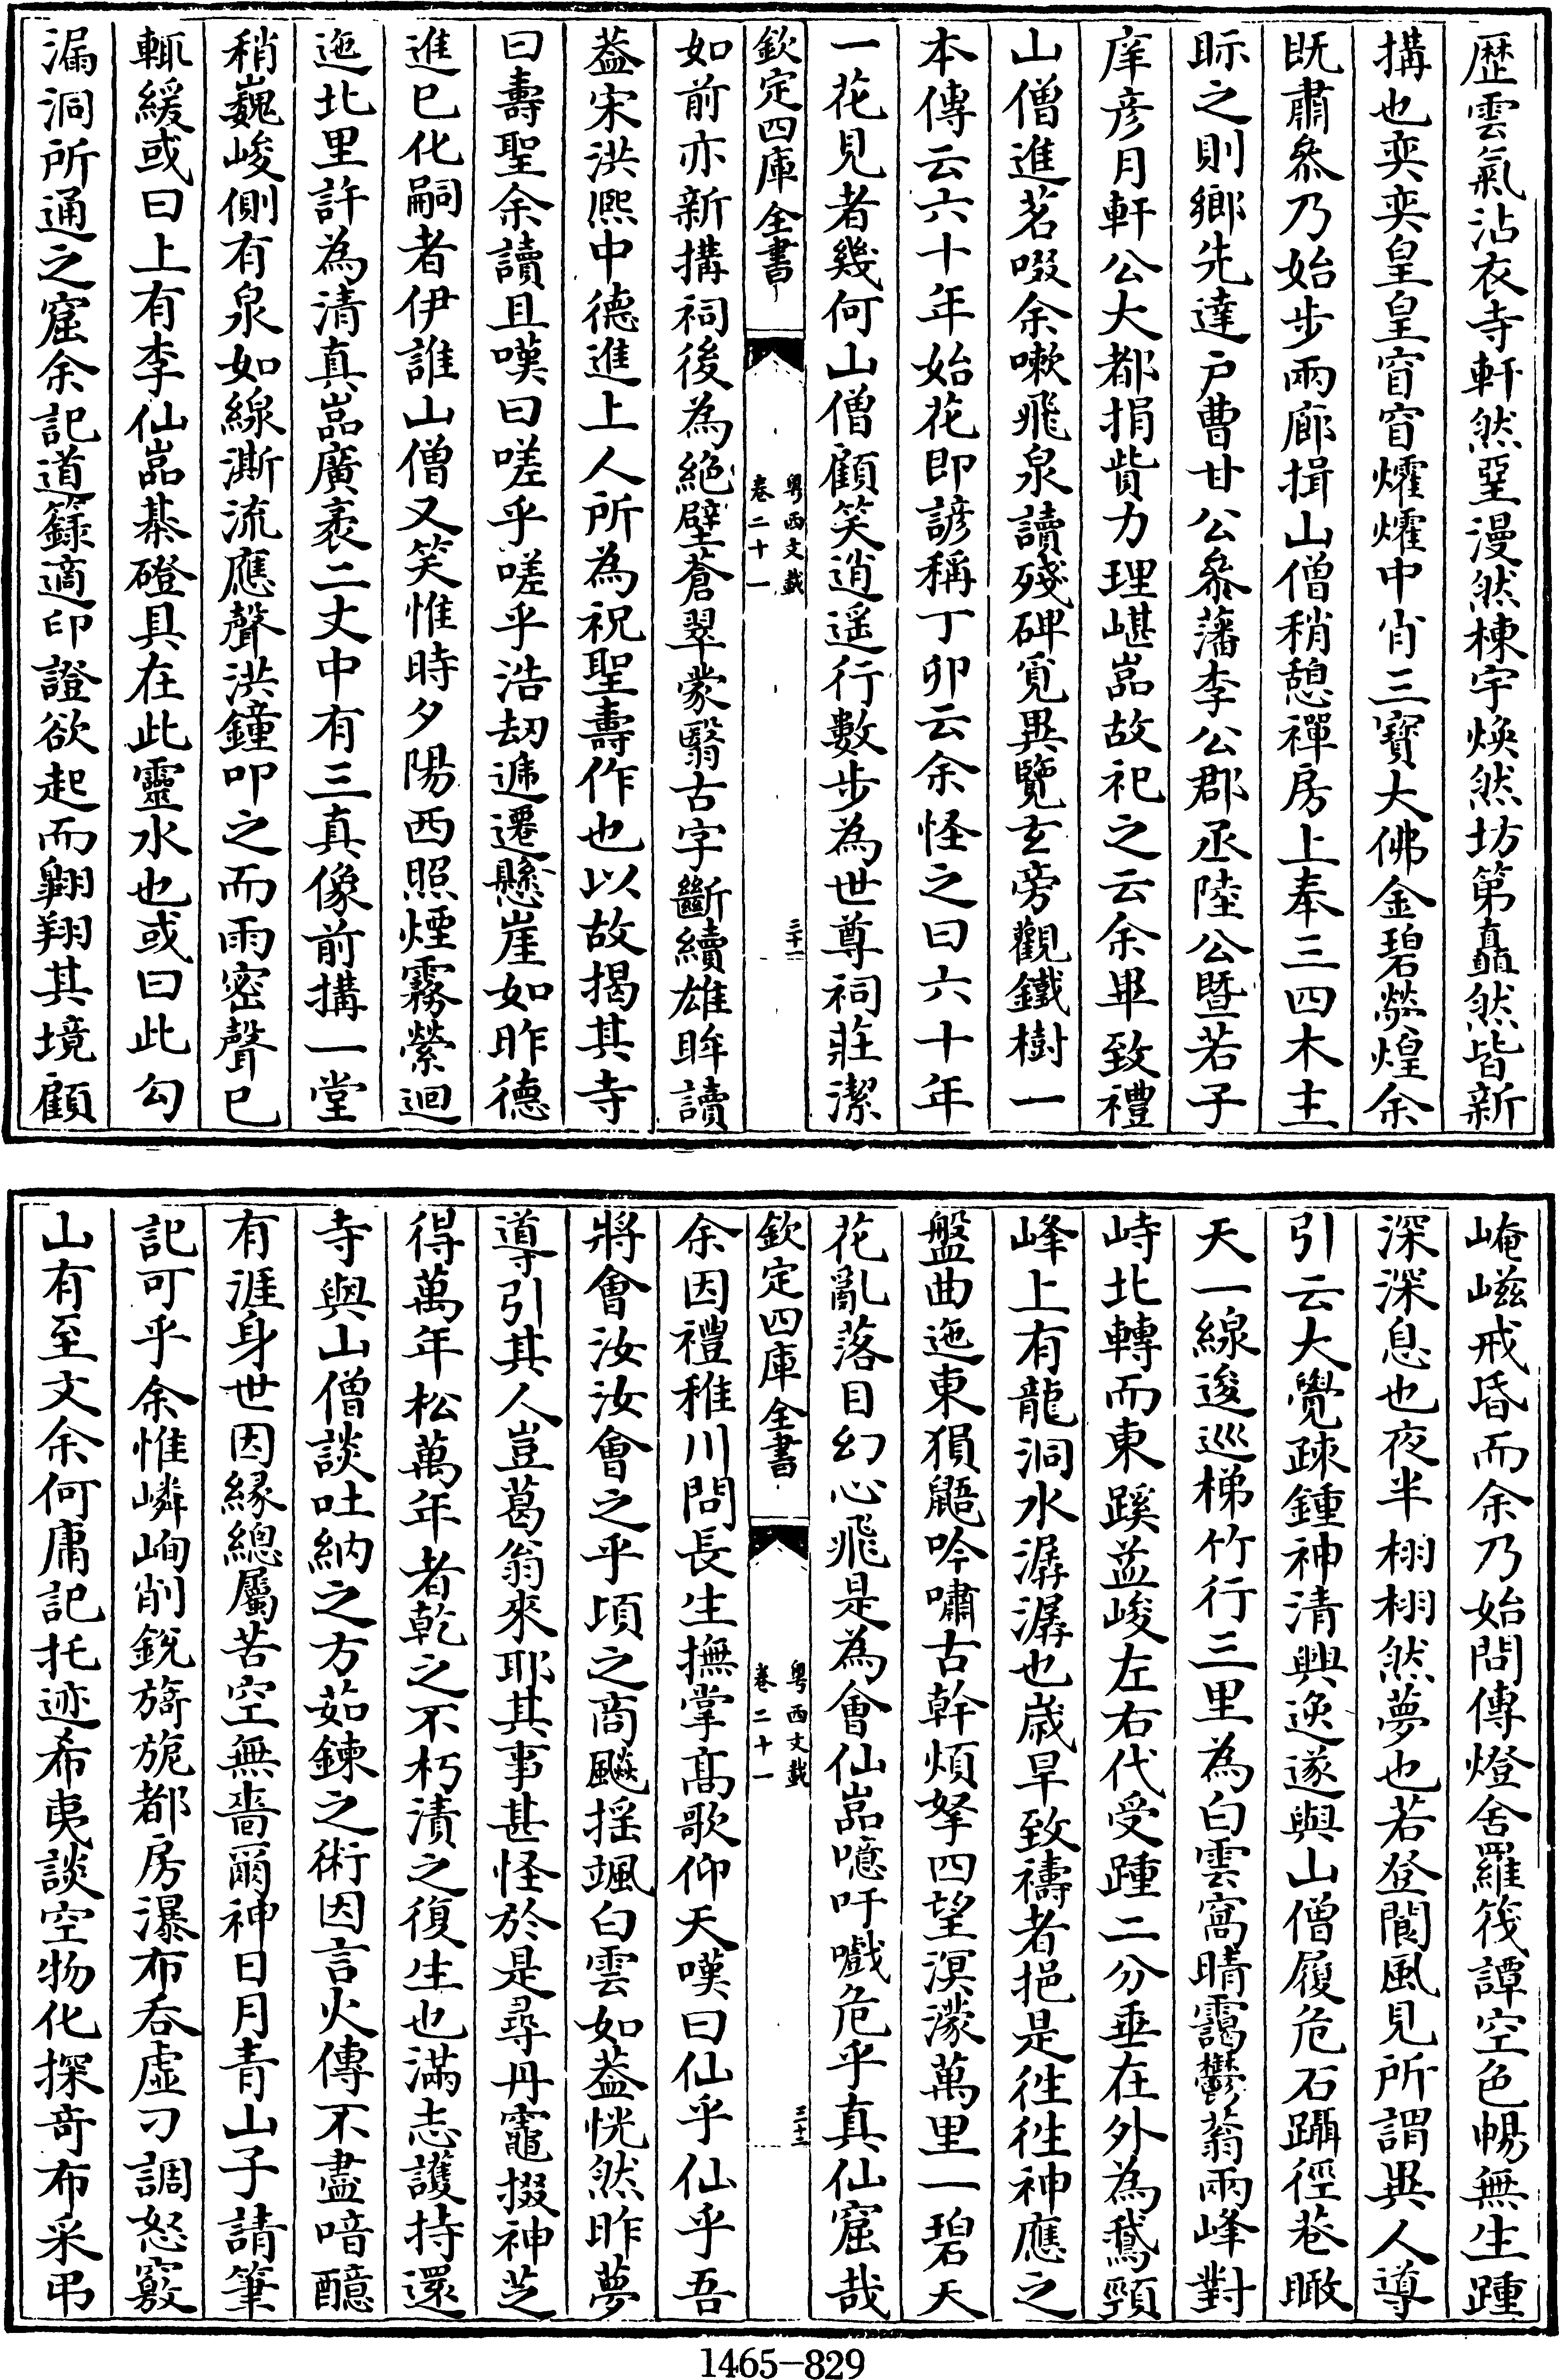 歴雲氣沾衣寺軒然堊漫然棟宇煥然坊第矗然皆新
搆也奕奕皇皇窅窅燿燿中肖三寳大佛金碧熒煌余
既肅叅乃始步兩廊揖山僧稍憩禪房上奉三四木主
眎之則鄉先達戸曹甘公叅藩李公郡丞陸公暨若子
庠彦月軒公大都捐貲力理嵁嵓故祀之云余畢致禮
山僧進茗啜余嗽飛泉讀殘碑覓異覽玄旁觀鐵樹一
本傳云六十年始花即諺稱丁卯云余怪之曰六十年
一花見者幾何山僧顧笑逍遥行數步為世尊祠莊潔
欽定四庫全書
粤西文載
卷二十一
三十一
如前亦新搆祠後為絶壁蒼翠蒙翳古字斷續雄眸讀
葢宋洪熈中德進上人所為祝聖壽作也以故揭其寺
曰壽聖余讀且嘆曰嗟乎嗟乎浩刼遞遷懸崖如昨德
進已化嗣者伊誰山僧又笑惟時夕陽西照煙霧縈迴
迤北里許為清真嵓廣袤二丈中有三真像前搆一堂
稍巍峻側有泉如線澌流應聲洪鐘叩之而雨密聲已
輒緩或曰上有李仙嵓棊磴具在此靈水也或曰此勾
漏洞所通之窟余記道籙適印證欲起而翺翔其境顧
崦嵫戒昏而余乃始問傳燈舍羅筏譚空色暢無生踵
深深息也夜半栩栩然夢也若登閬風見所謂異人導
引云大覺疎鍾神清興逸遂與山僧履危石躡徑巷瞰
天一線逡巡梯竹行三里為白雲窩晴靄鬱蓊兩峰對
峙北轉而東蹊益峻左右代受踵二分垂在外為鵞頸
峰上有龍洞水潺潺也歲旱致禱者挹是徃徃神應之
盤曲迤東狽鼯吟嘯古幹煩拏四望溟濛萬里一碧天
花亂落目幻心飛是為會仙嵓噫吁嚱危乎真仙窟哉
欽定四庫全書
粤西文載
卷二十一
三十二
余因禮稚川問長生撫掌髙歌仰天嘆曰仙乎仙乎吾
將會汝汝會之乎頃之商飈揺颯白雲如葢恍然昨夢
導引其人豈葛翁來耶其事甚怪於是尋丹竈掇神芝
得萬年松萬年者乾之不朽漬之復生也滿志護持還
寺與山僧談吐納之方茹鍊之術因言火傳不盡喑醷
有涯身世因緣總屬苦空無啻爾神日月青山子請筆
記可乎余惟嶙峋削銳旖旎都房瀑布呑虚刁調怒竅
山有至文余何庸記托迹希夷談空物化探奇布采弔
1465-829